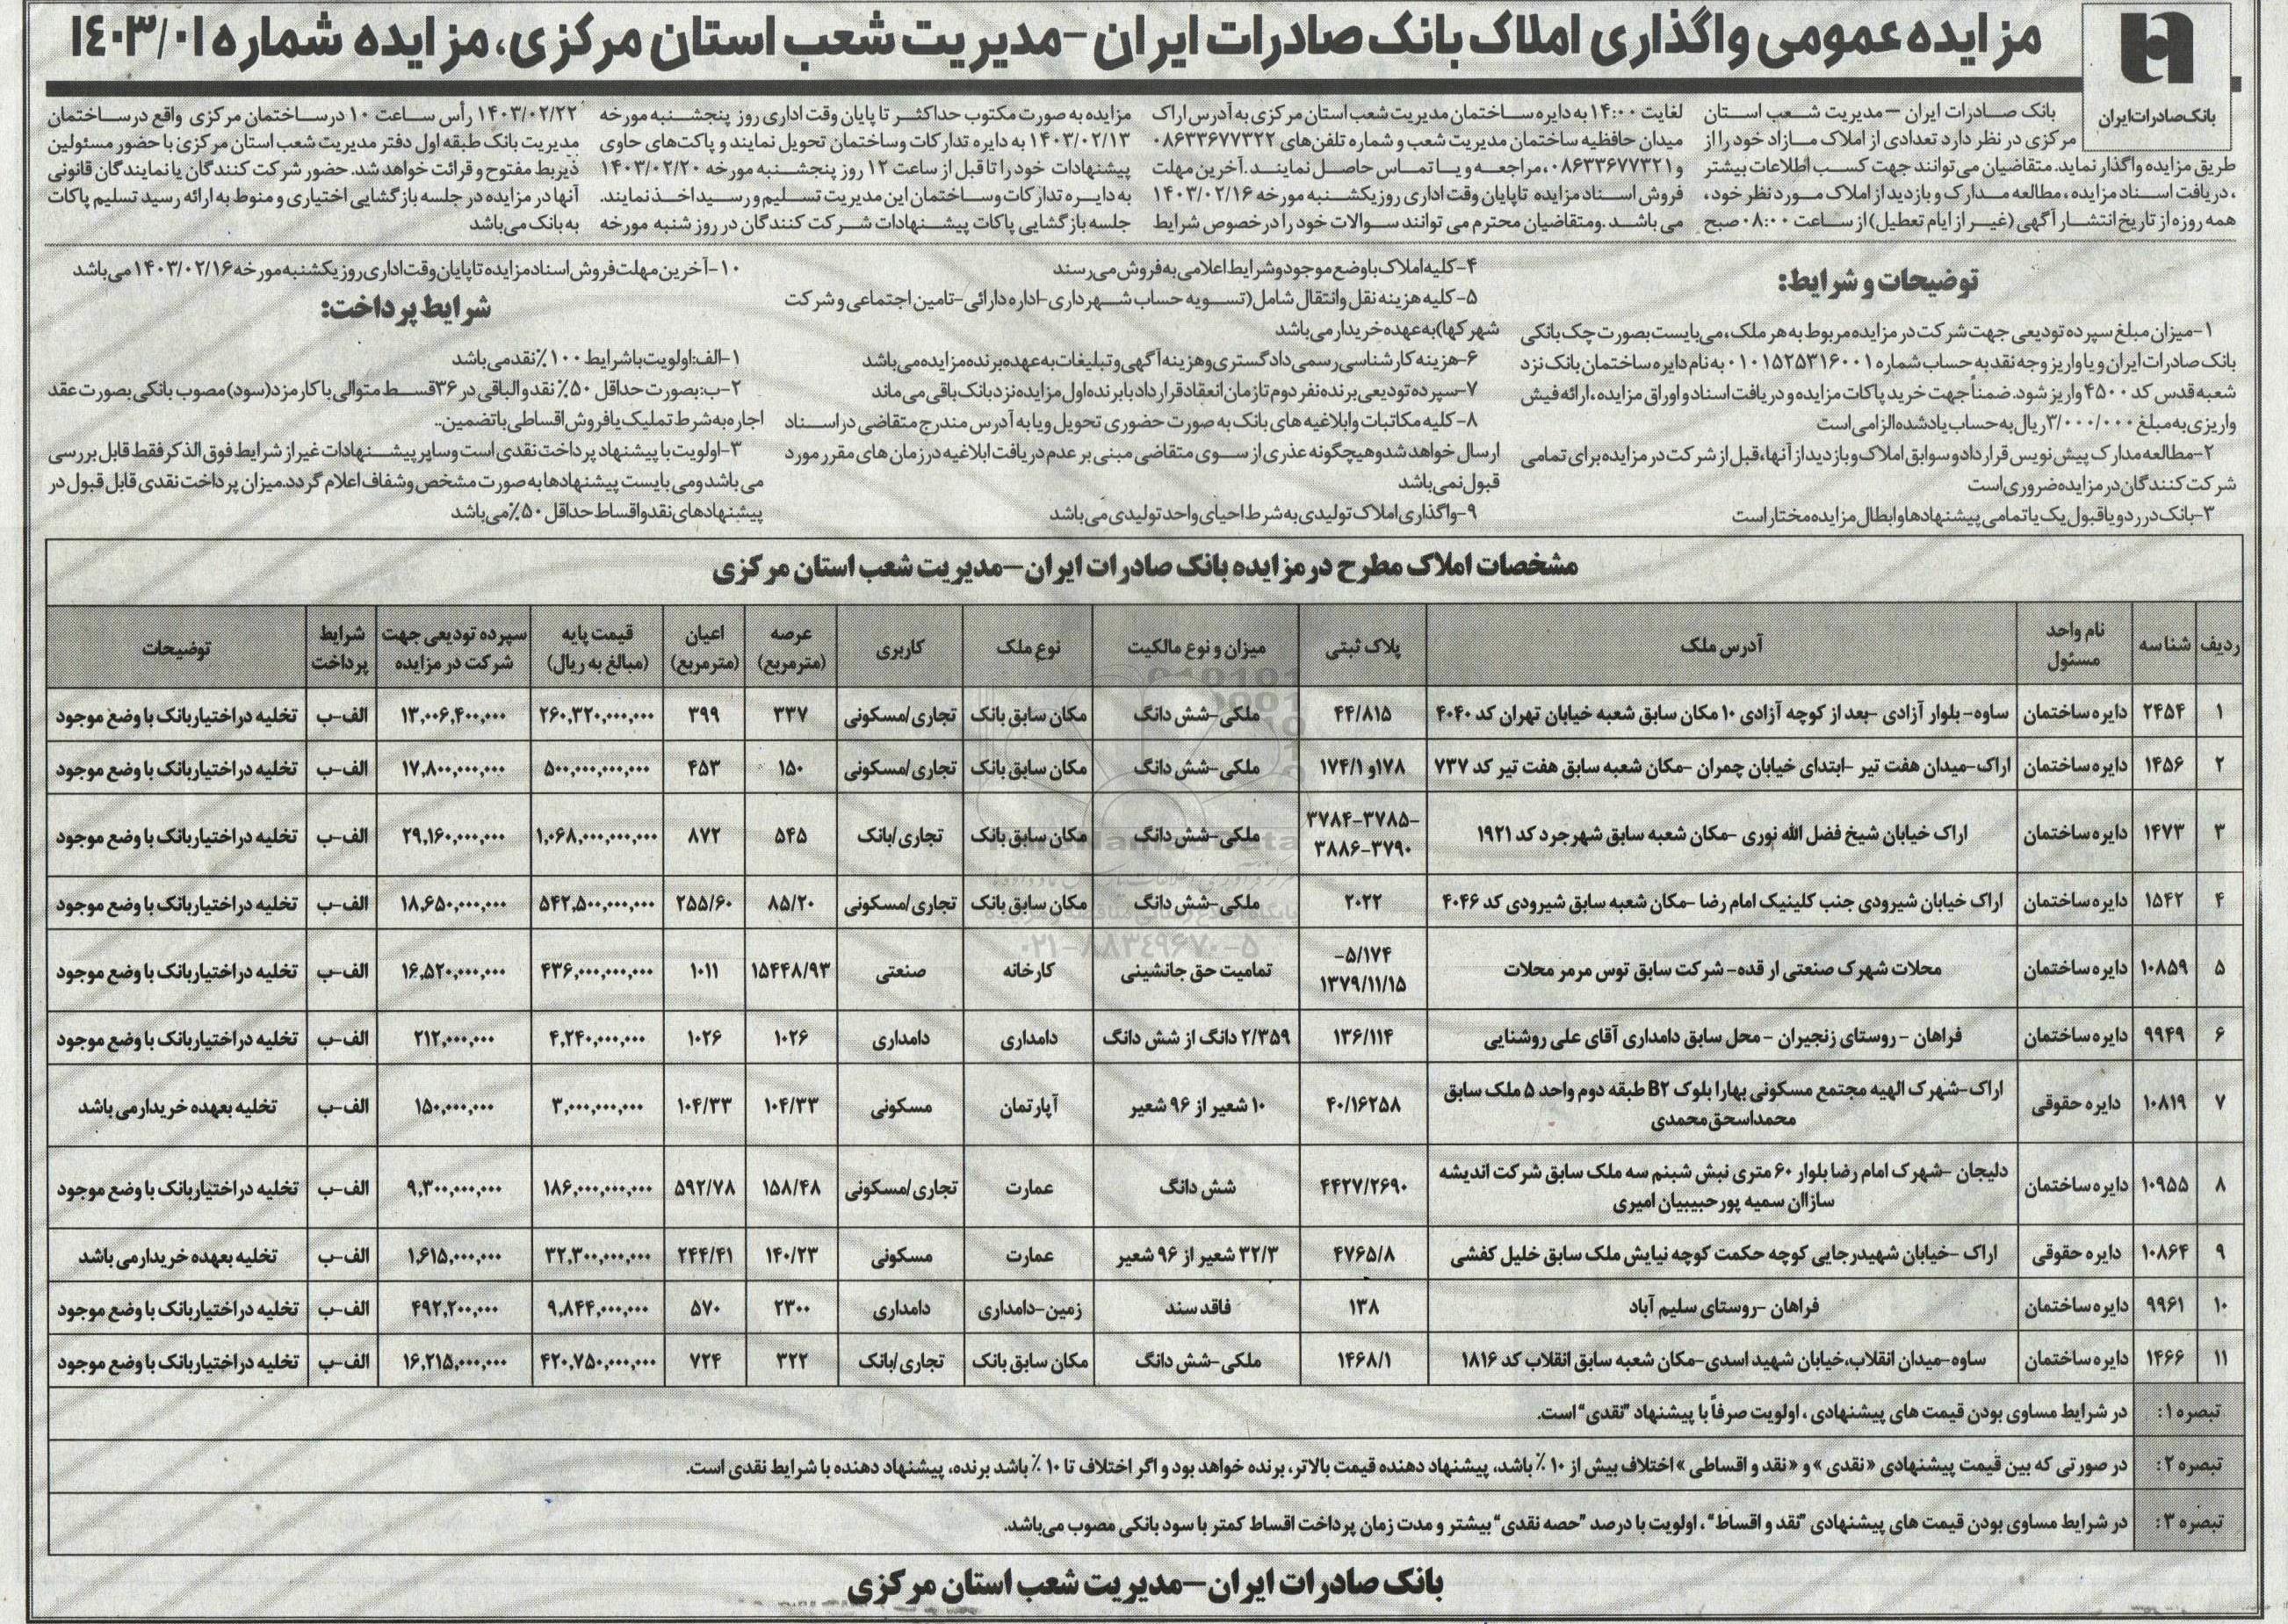 مزایده عمومی واگذاری املاک بانک صادرات ایران -مدیریت شعب استان مرکزی، مزایده شماره ۱۴۰۳/۰۱
بانک صادرات ایران
بانک صادرات ایران – مدیریت شعب استان
مرکزی در نظر دارد تعدادی از املاک مازاد خود را از
طریق مزایده واگذار نماید. متقاضیان می‌توانند جهت کسب اطلاعات بیشتر
، دریافت اسناد مزایده، مطالعه مدارک و بازدید از املاک مورد نظر خود،
همه روزه از تاریخ انتشار آگهی (غیر از ایام تعطیل) از ساعت ۰۸:۰۰ صبح
لغایت ۱۴:۰۰ به دایره ساختمان مدیریت شعب استان مرکزی به آدرس اراک
میدان حافظیه ساختمان مدیریت شعب و شماره تلفن‌های ۰۸۶۳۳۶۷۷۳۲۲
و ۰۸۶۳۳۶۷۷۳۲۱، مراجعه و یا تماس حاصل نمایند. آخرین مهلت
فروش اسناد مزایده تا پایان وقت اداری روز یکشنبه مورخه ۱۴۰۳/۰۲/۱۶
می باشد. ومتقاضیان محترم می توانند سوالات خود را در خصوص شرایط
مزایده به صورت مکتوب حداکثر تا پایان وقت اداری روز پنجشنبه مورخه
۱۴۰۳/۰۲/۱۳ به دایره تدارکات وساختمان تحویل نمایند و پاکت‌های حاوی
پیشنهادات خود را تا قبل از ساعت ۱۲ روز پنجشنبه مورخه ۱۴۰۳/۰۲/۲۰
به دایره تدارکات وساختمان این مدیریت تسلیم و رسید اخذ نمایند.
جلسه بازگشایی پاکات پیشنهادات شرکت کنندگان در روز شنبه مورخه
۱۴۰۳/۰۲/۲۲ رأس ساعت ۱۰ در ساختمان مرکزی واقع در ساختمان
مدیریت بانک طبقه اول دفتر مدیریت شعب استان مرکزی با حضور مسئولین
ذیربط مفتوح و قرائت خواهد شد. حضور شرکت کنندگان یا نمایندگان قانونی
آنها در مزایده در جلسه بازگشایی اختیاری و منوط به ارائه رسید تسلیم پاکات
به بانک می‌باشد
توضیحات و شرایط:
۱-میزان مبلغ سپرده تودیعی جهت شرکت در مزایده مربوط به هر ملک، می‌بایست بصورت چک بانکی
بانک صادرات ایران و یا واریز وجه نقد به حساب شماره ۰۱۰۱۵۲۵۳۱۶۰۰۱ به نام دایره ساختمان بانک نزد
شعبه قدس کد ۴۵۰۰ واریز شود. ضمناً جهت خرید پاکات مزایده و دریافت اسناد و اوراق مزایده، ارائه فیش
واریزی به مبلغ ۳/۰۰۰/۰۰۰ ریال به حساب یاد شده الزامی است
۲-مطالعه مدارک پیش نویس قرارداد و سوابق املاک و بازدید از آنها، قبل از شرکت در مزایده برای تمامی
شرکت کنندگان در مزایده ضروری است
۳-بانک در رد و یا قبول یک یا تمامی پیشنهادها و ابطال مزایده مختار است
۴-کلیه املاک با وضع موجود و شرایط اعلامی به فروش می رسند
۵-کلیه هزینه نقل و انتقال شامل (تسویه حساب شهرداری-اداره دارائی-تامین اجتماعی و شرکت
شهرکها) به عهده خریدار می باشد
۶-هزینه کارشناسی رسمی دادگستری و هزینه آگهی و تبلیغات به عهده برنده مزایده می باشد
۷-سپرده تودیعی برنده نفر دوم تا زمان انعقاد قرارداد با برنده اول مزایده نزد بانک باقی می ماند
۸-کلیه مکاتبات و ابلاغیه های بانک به صورت حضوری تحویل و یا به آدرس مندرج متقاضی در اسناد
ارسال خواهد شد و هیچگونه عذری از سوی متقاضی مبنی بر عدم دریافت ابلاغیه در زمان های مقرر مورد
قبول نمی باشد
۹-واگذاری املاک تولیدی به شرط احیای واحد تولیدی می باشد
۱۰-آخرین مهلت فروش اسناد مزایده تا پایان وقت اداری روز یکشنبه مورخه ۱۴۰۳/۰۲/۱۶ می باشد
شرایط پرداخت:
۱-الف: اولویت با شرایط ۱۰۰٪ نقد می باشد
۲-ب: بصورت حداقل ۵۰٪ نقد و الباقی در ۳۶ قسط متوالی با کارمزد(سود) مصوب بانکی بصورت عقد
اجاره به شرط تملیک یا فروش اقساطی با تضمین..
۳-اولویت با پیشنهاد پرداخت نقدی است و سایر پیشنهادات غیر از شرایط فوق الذکر فقط قابل بررسی
می باشد و می بایست پیشنهادها به صورت مشخص و شفاف اعلام گردد. میزان پرداخت نقدی قابل قبول در
پیشنهادهای نقد و اقساط حداقل ۵۰٪ می باشد
مشخصات املاک مطرح در مزایده بانک صادرات ایران –مدیریت شعب استان مرکزی
ردیف شناسه نام واحد مسئول آدرس ملک پلاک ثبتی میزان و نوع مالکیت نوع ملک کاربری عرصه (مترمربع) اعیان (مترمربع) قیمت پایه (مبالغ به ریال) سپرده تودیعی جهت شرکت در مزایده شرایط پرداخت توضیحات
۱ ۲۴۵۴ دایره ساختمان ساوه- بلوار آزادی -بعد از کوچه آزادی ۱۰ مکان سابق شعبه خیابان تهران کد ۴۰۴۰ ۴۴/۸۱۵ ملکی-شش دانگ مکان سابق بانک تجاری/مسکونی ۳۳۷ ۳۹۹ ۲۶۰,۳۲۰,۰۰۰,۰۰۰ ۱۳,۰۰۶,۴۰۰,۰۰۰ الف-ب تخلیه در اختیار بانک با وضع موجود
۲ ۱۴۵۶ دایره ساختمان اراک-میدان هفت تیر -ابتدای خیابان چمران -مکان شعبه سابق هفت تیر کد ۷۳۷ ۱۷۸و ۱۷۴/۱ ملکی-شش دانگ مکان سابق بانک تجاری/مسکونی ۱۵۰ ۴۵۳ ۵۰۰,۰۰۰,۰۰۰,۰۰۰ ۱۷,۸۰۰,۰۰۰,۰۰۰ الف-ب تخلیه در اختیار بانک با وضع موجود
۳ ۱۴۷۳ دایره ساختمان اراک خیابان شیخ فضل الله نوری -مکان شعبه سابق شهرجرد کد ۱۹۲۱ ۳۷۸۴-۳۷۸۵- ۳۸۸۶-۳۷۹۰ ملکی-شش دانگ مکان سابق بانک تجاری/بانک ۵۴۵ ۸۷۲ ۱,۰۶۸,۰۰۰,۰۰۰,۰۰۰ ۲۹,۱۶۰,۰۰۰,۰۰۰ الف-ب تخلیه در اختیار بانک با وضع موجود
۴ ۱۵۴۲ دایره ساختمان اراک خیابان شیرودی جنب کلینیک امام رضا -مکان شعبه سابق شیرودی کد ۴۰۴۶ ۲۰۲۲ ملکی-شش دانگ مکان سابق بانک تجاری/مسکونی ۸۵/۲۰ ۲۵۵/۶۰ ۵۴۲,۵۰۰,۰۰۰,۰۰۰ ۱۸,۶۵۰,۰۰۰,۰۰۰ الف-ب تخلیه در اختیار بانک با وضع موجود
۵ ۱۰۸۵۹ دایره ساختمان محلات شهرک صنعتی ارقده- شرکت سابق توس مرمر محلات ۵/۱۷۴- ۱۳۷۹/۱۱/۱۵ تمامیت حق جانشینی کارخانه صنعتی ۱۵۴۴۸/۹۳ ۱۰۱۱ ۴۳۶,۰۰۰,۰۰۰,۰۰۰ ۱۶,۵۲۰,۰۰۰,۰۰۰ الف-ب تخلیه در اختیار بانک با وضع موجود
۶ ۹۹۴۹ دایره ساختمان فراهان - روستای زنجیران - محل سابق دامداری آقای علی روشنایی ۱۳۶/۱۱۴ ۲/۳۵۹ دانگ از شش دانگ دامداری دامداری ۱۰۲۶ ۱۰۲۶ ۴,۲۴۰,۰۰۰,۰۰۰ ۲۱۲,۰۰۰,۰۰۰ الف-ب تخلیه در اختیار بانک با وضع موجود
۷ ۱۰۸۱۹ دایره حقوقی اراک-شهرک الهیه مجتمع مسکونی بهارا بلوک B۲ طبقه دوم واحد ۵ ملک سابق محمداسحق محمدی ۴۰/۱۶۲۵۸ ۱۰ شعیر از ۹۶ شعیر آپارتمان مسکونی ۱۰۴/۳۳ ۱۰۴/۳۳ ۳,۰۰۰,۰۰۰,۰۰۰ ۱۵۰,۰۰۰,۰۰۰ الف-ب تخلیه بعهده خریدار می باشد
۸ ۱۰۹۵۵ دایره ساختمان دلیجان -شهرک امام رضا بلوار ۶۰ متری نبش شبنم سه ملک سابق شرکت اندیشه سازان سمیه پورحبیبیان امیری ۴۴۲۷/۲۶۹۰ شش دانگ عمارت تجاری/مسکونی ۱۵۸/۴۸ ۵۹۲/۷۸ ۱۸۶,۰۰۰,۰۰۰,۰۰۰ ۹,۳۰۰,۰۰۰,۰۰۰ الف-ب تخلیه در اختیار بانک با وضع موجود
۹ ۱۰۸۶۴ دایره حقوقی اراک -خیابان شهیدرجایی کوچه حکمت کوچه نیایش ملک سابق خلیل کفشی ۴۷۶۵/۸ ۳۲/۳ شعیر از ۹۶ شعیر عمارت مسکونی ۱۴۰/۲۳ ۲۴۴/۴۱ ۳۲,۳۰۰,۰۰۰,۰۰۰ ۱,۶۱۵,۰۰۰,۰۰۰ الف-ب تخلیه بعهده خریدار می باشد
۱۰ ۹۹۶۱ دایره ساختمان فراهان -روستای سلیم آباد ۱۳۸ فاقد سند زمین-دامداری دامداری ۲۳۰۰ ۵۷۰ ۹,۸۴۴,۰۰۰,۰۰۰ ۴۹۲,۲۰۰,۰۰۰ الف-ب تخلیه در اختیار بانک با وضع موجود
۱۱ ۱۴۶۶ دایره ساختمان ساوه-میدان انقلاب،خیابان شهید اسدی-مکان شعبه سابق انقلاب کد ۱۸۱۶ ۱۴۶۸/۱ ملکی-شش دانگ مکان سابق بانک تجاری/بانک ۳۲۲ ۷۲۴ ۴۲۰,۷۵۰,۰۰۰,۰۰۰ ۱۶,۲۱۵,۰۰۰,۰۰۰ الف-ب تخلیه در اختیار بانک با وضع موجود
تبصره ۱: در شرایط مساوی بودن قیمت های پیشنهادی ، اولویت صرفاً با پیشنهاد "نقدی" است.
تبصره ۲: در صورتی که بین قیمت پیشنهادی «نقدی» و «نقد و اقساطی» اختلاف بیش از ۱۰٪ باشد، پیشنهاد دهنده قیمت بالاتر، برنده خواهد بود و اگر اختلاف تا ۱۰٪ باشد برنده، پیشنهاد دهنده با شرایط نقدی است.
تبصره ۳: در شرایط مساوی بودن قیمت های پیشنهادی "نقد و اقساط" ، اولویت با درصد "حصه نقدی" بیشتر و مدت زمان پرداخت اقساط کمتر با سود بانکی مصوب می‌باشد.
بانک صادرات ایران–مدیریت شعب استان مرکزی
۰۲۱-۸۸۳۴۹۶۷۰-۵